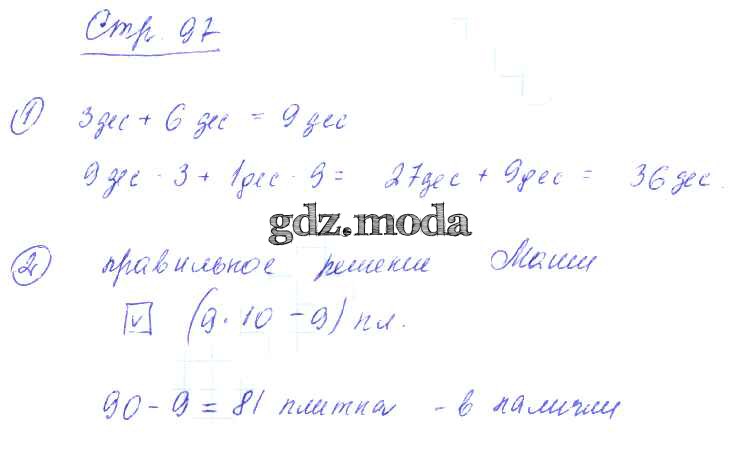 Стр. 97
① 3 дес + 6 дес = 9 дес
9 дес · 3 + 1 дес · 9 = 27 дес + 9 дес = 36 дес.
gdz.moda
② правильное решение Маши
☑ (9 · 10 - 9) пл.
90 - 9 = 81 плитка - в наличии